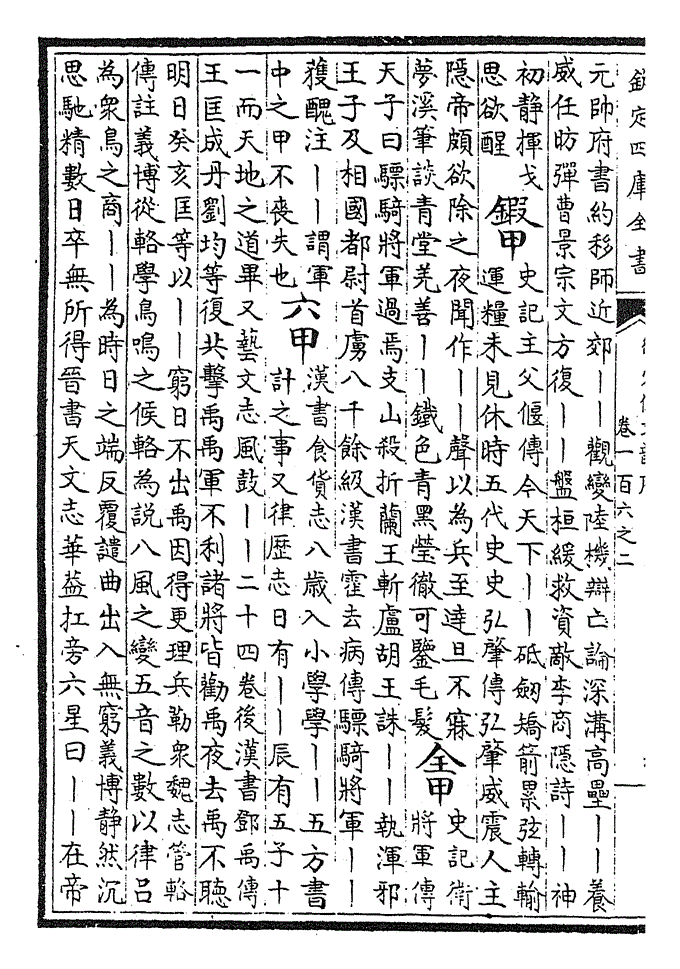 欽定四庫全書
卷一百六之二
元帥府書約移師近郊丨丨觀變陸機辯亡論深溝高壘丨丨養
威任昉彈曹景宗文方復丨丨盤桓緩救資敵李商隱詩丨丨神
初静揮戈
思欲醒
鍜甲
史記主父偃傳今天下丨丨砥劒矯箭累弦轉輸
運糧未見休時五代史史弘肇傳弘肇威震人主
隱帝頗欲除之夜聞作丨丨聲以為兵至達旦不寐
夢溪筆談青堂羌善丨丨鐵色青黑瑩徹可鑒毛髮
全甲
史記衛
將軍傳
天子曰驃騎將軍過焉支山殺折蘭王斬盧胡王誅丨丨執渾邪
王子及相國都尉首虜八千餘級漢書霍去病傳驃騎將軍丨丨
獲醜注丨丨謂軍
中之甲不喪失也
六甲
漢書食貨志八歲入小學學丨丨五方書
計之事又律歷志日有丨丨辰有五子十
一而天地之道畢又藝文志風鼓丨丨二十四卷後漢書鄧禹傳
王匡成丹劉均等復共擊禹禹軍不利諸將皆勸禹夜去禹不聽
明日癸亥匡等以丨丨窮日不出禹因得更理兵勒衆魏志管輅
傳註義博從輅學鳥鳴之候輅為說八風之變五音之數以律呂
為衆鳥之商丨丨為時日之端反覆譴曲出入無窮義博静然沉
思馳精數日卒無所得晉書天文志華葢扛旁六星曰丨丨在帝